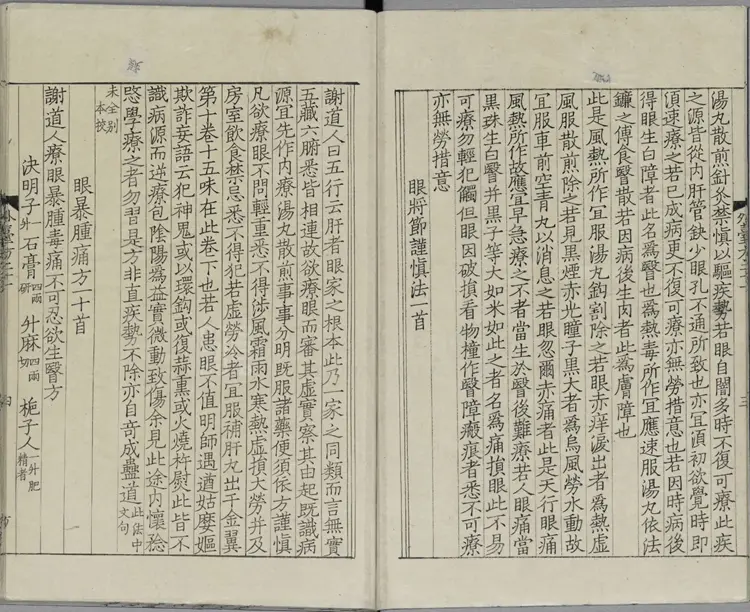 湯丸散煎針灸禁慎以驅疾勢若眼自闇多時不復可療此疾
之源皆從内肝管缺少眼孔不通所致也亦宜須初欲覺時即
須速療之若已成病更不復可療亦無勞措意也若因時病後
得眼生白障者此名為翳也為熱毒所作宜應速服湯丸依法
鐮之傅食翳散若因病後生肉者此為膚障也
此是風熱所作宜服湯丸鈎割除之若眼赤痒淚出者為熱虛
風服散煎除之若見黒煙赤光瞳子黒大者為烏風勞水動故
宜服車前空青丸以消息之若眼忽爾赤痛者此是天行眼痛
風熱所作故應宜早急療之不者當生於翳後難療若人眼痛當
黒珠生白翳并黒子等大如米如此之者名為痛損眼此不易
可療勿輕犯觸但眼因破損看物撞作翳障癥痕者悉不可療
亦無勞措意
眼將節謹慎法一首
三
謝道人曰五行云肝者眼家之根本此乃一家之同類而言無實
五藏六腑悉皆相連故欲療眼而審其虛實察其由起既識病
源宜先作内療湯丸散煎事事分明既服諸藥便須依方謹慎
凡欲療眼不問輕重悉不得涉風霜雨水寒熱虛損大勞并及
房室飲食禁忌悉不得犯若虛勞冷者宜服補肝丸出千金翼
第十卷十五味在此卷下也若人患眼不值明師遇遒姑麼嫗
欺詐妄語云犯神鬼或以環鈎或復蒜熏或火燒杵熨此皆不
識病源而逆療包陰陽為益實微動致傷余見此途内懷稔
愍學療之者勿習是方非直疾勢不除亦自奇成蠱道此法中文句
未全別本挍
眼暴腫痛方一十首
謝道人療眼暴腫毒痛不可忍欲生翳方
決明子一升 石膏四兩研 升麻四兩切 梔子人一升肥精者
四